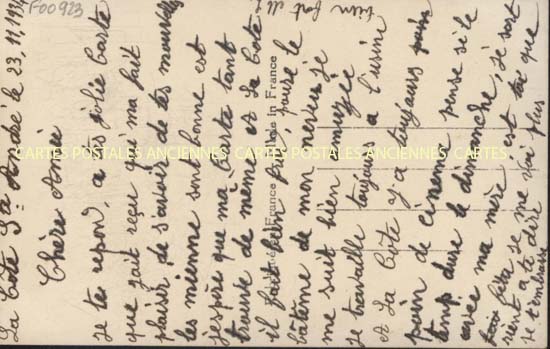 F00923
La Côte St André le 23.11.1934
Chère Amie
Je te repond, a ta jolie Carte
que j'ait reçu qui ma fait
plaisir de s'avoir de tes nouvelles
les mienne sont bonne est
j'espère que ma Carte tant
trouve de même. A La Cote
il fait bien , pour le
bâteme de mon neveu je
me suit bien amuzée
je travaille toujours a l'usine
et La Côte y a toujours
poin de cinema pense si le
temp dure le dimanche, je sort
avec ma mère est toi que
fait
rient a te dire
je t'embrasse
tien fort
Made in France
CARTES POSTALES ANCIENNES CARTES POSTALES ANCIENNES CARTES